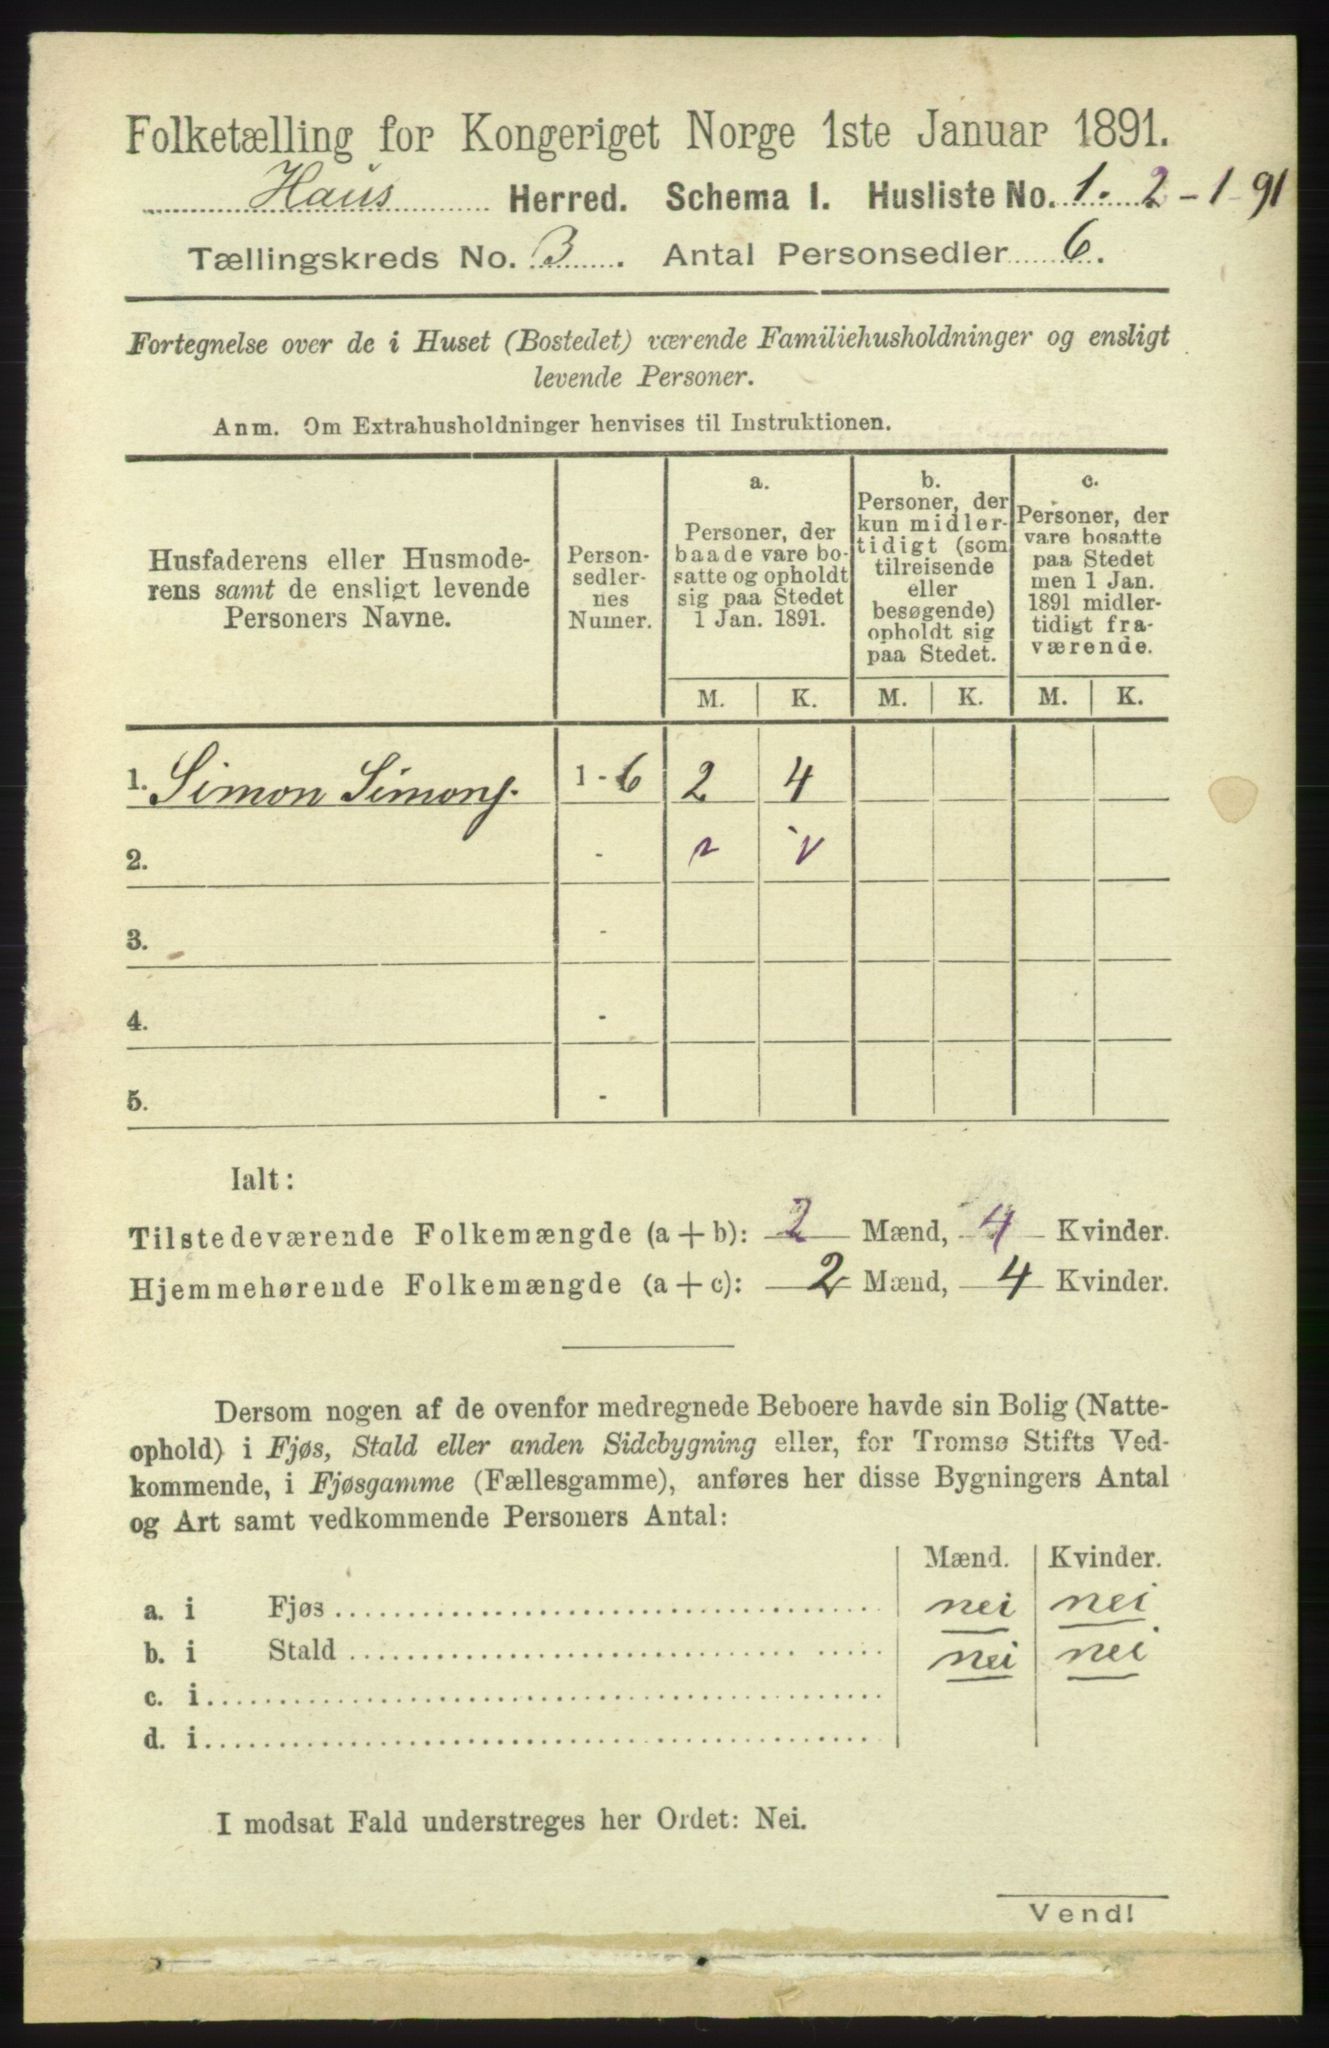 Folketælling for Kongeriget Norge 1ste Januar 1891.
Haus Herred. Schema I. Husliste No. 1. 2-1-91
Tællingskreds No. 3. Antal Personsedler 6.
Fortegnelse over de i Huset (Bostedet) værende Familiehusholdninger og ensligt
levende Personer.
Anm. Om Extrahusholdninger henvises til Instruktionen.
Husfaderens eller Husmode-
rens samt de ensligt levende
Personers Navne.
Person-
sedler-
nes
Numer.
a.
Personer, der
baade vare bo-
satte og opholdt
sig paa Stedet
1 Jan. 1891.
b.
Personer, der
kun midler-
tidigt (som
tilreisende
eller
besøgende)
opholdt sig
paa Stedet.
c.
Personer, der
vare bosatte
paa Stedet
men 1 Jan.
1891 midler-
tidigt fra-
værende.
M. K. M. K. M. K.
1. Simon Simons. 1-6 2 4
2. -
3. -
4. -
5. -
Ialt:
Tilstedeværende Folkemængde (a+b): 2 Mænd, 4 Kvinder.
Hjemmehørende Folkemængde (a+c): 2 Mænd, 4 Kvinder.
Dersom nogen af de ovenfor medregnede Beboere havde sin Bolig (Natte-
ophold) i Fjøs, Stald eller anden Sidebygning eller, for Tromsø Stifts Ved-
kommende, i Fjøsgamme (Fællesgamme), anføres her disse Bygningers Antal
og Art samt vedkommende Personers Antal:
Mænd. Kvinder.
a. i Fjøs nei nei
b. i Stald nei nei
c. i
d. i
I modsat Fald understreges her Ordet: Nei.
Vend!